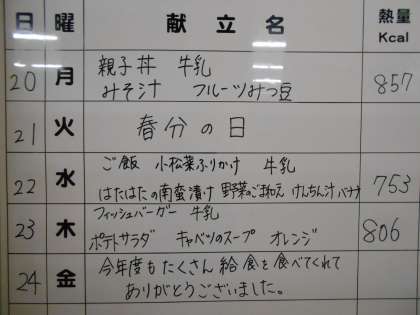 日 曜 献立名 熱量 Kcal
20 月 親子丼 牛乳
みそ汁 フルーツみつ豆 857
21 火 春分の日
22 水 ご飯 小松菜ふりかけ 牛乳
はたはたの南蛮漬け 野菜のごま和え けんちん汁 バナナ 753
23 木 フィッシュバーガー 牛乳
ポテトサラダ キャベツのスープ オレンジ 806
24 金 今年度もたくさん給食を食べてくれて
ありがとうございました。